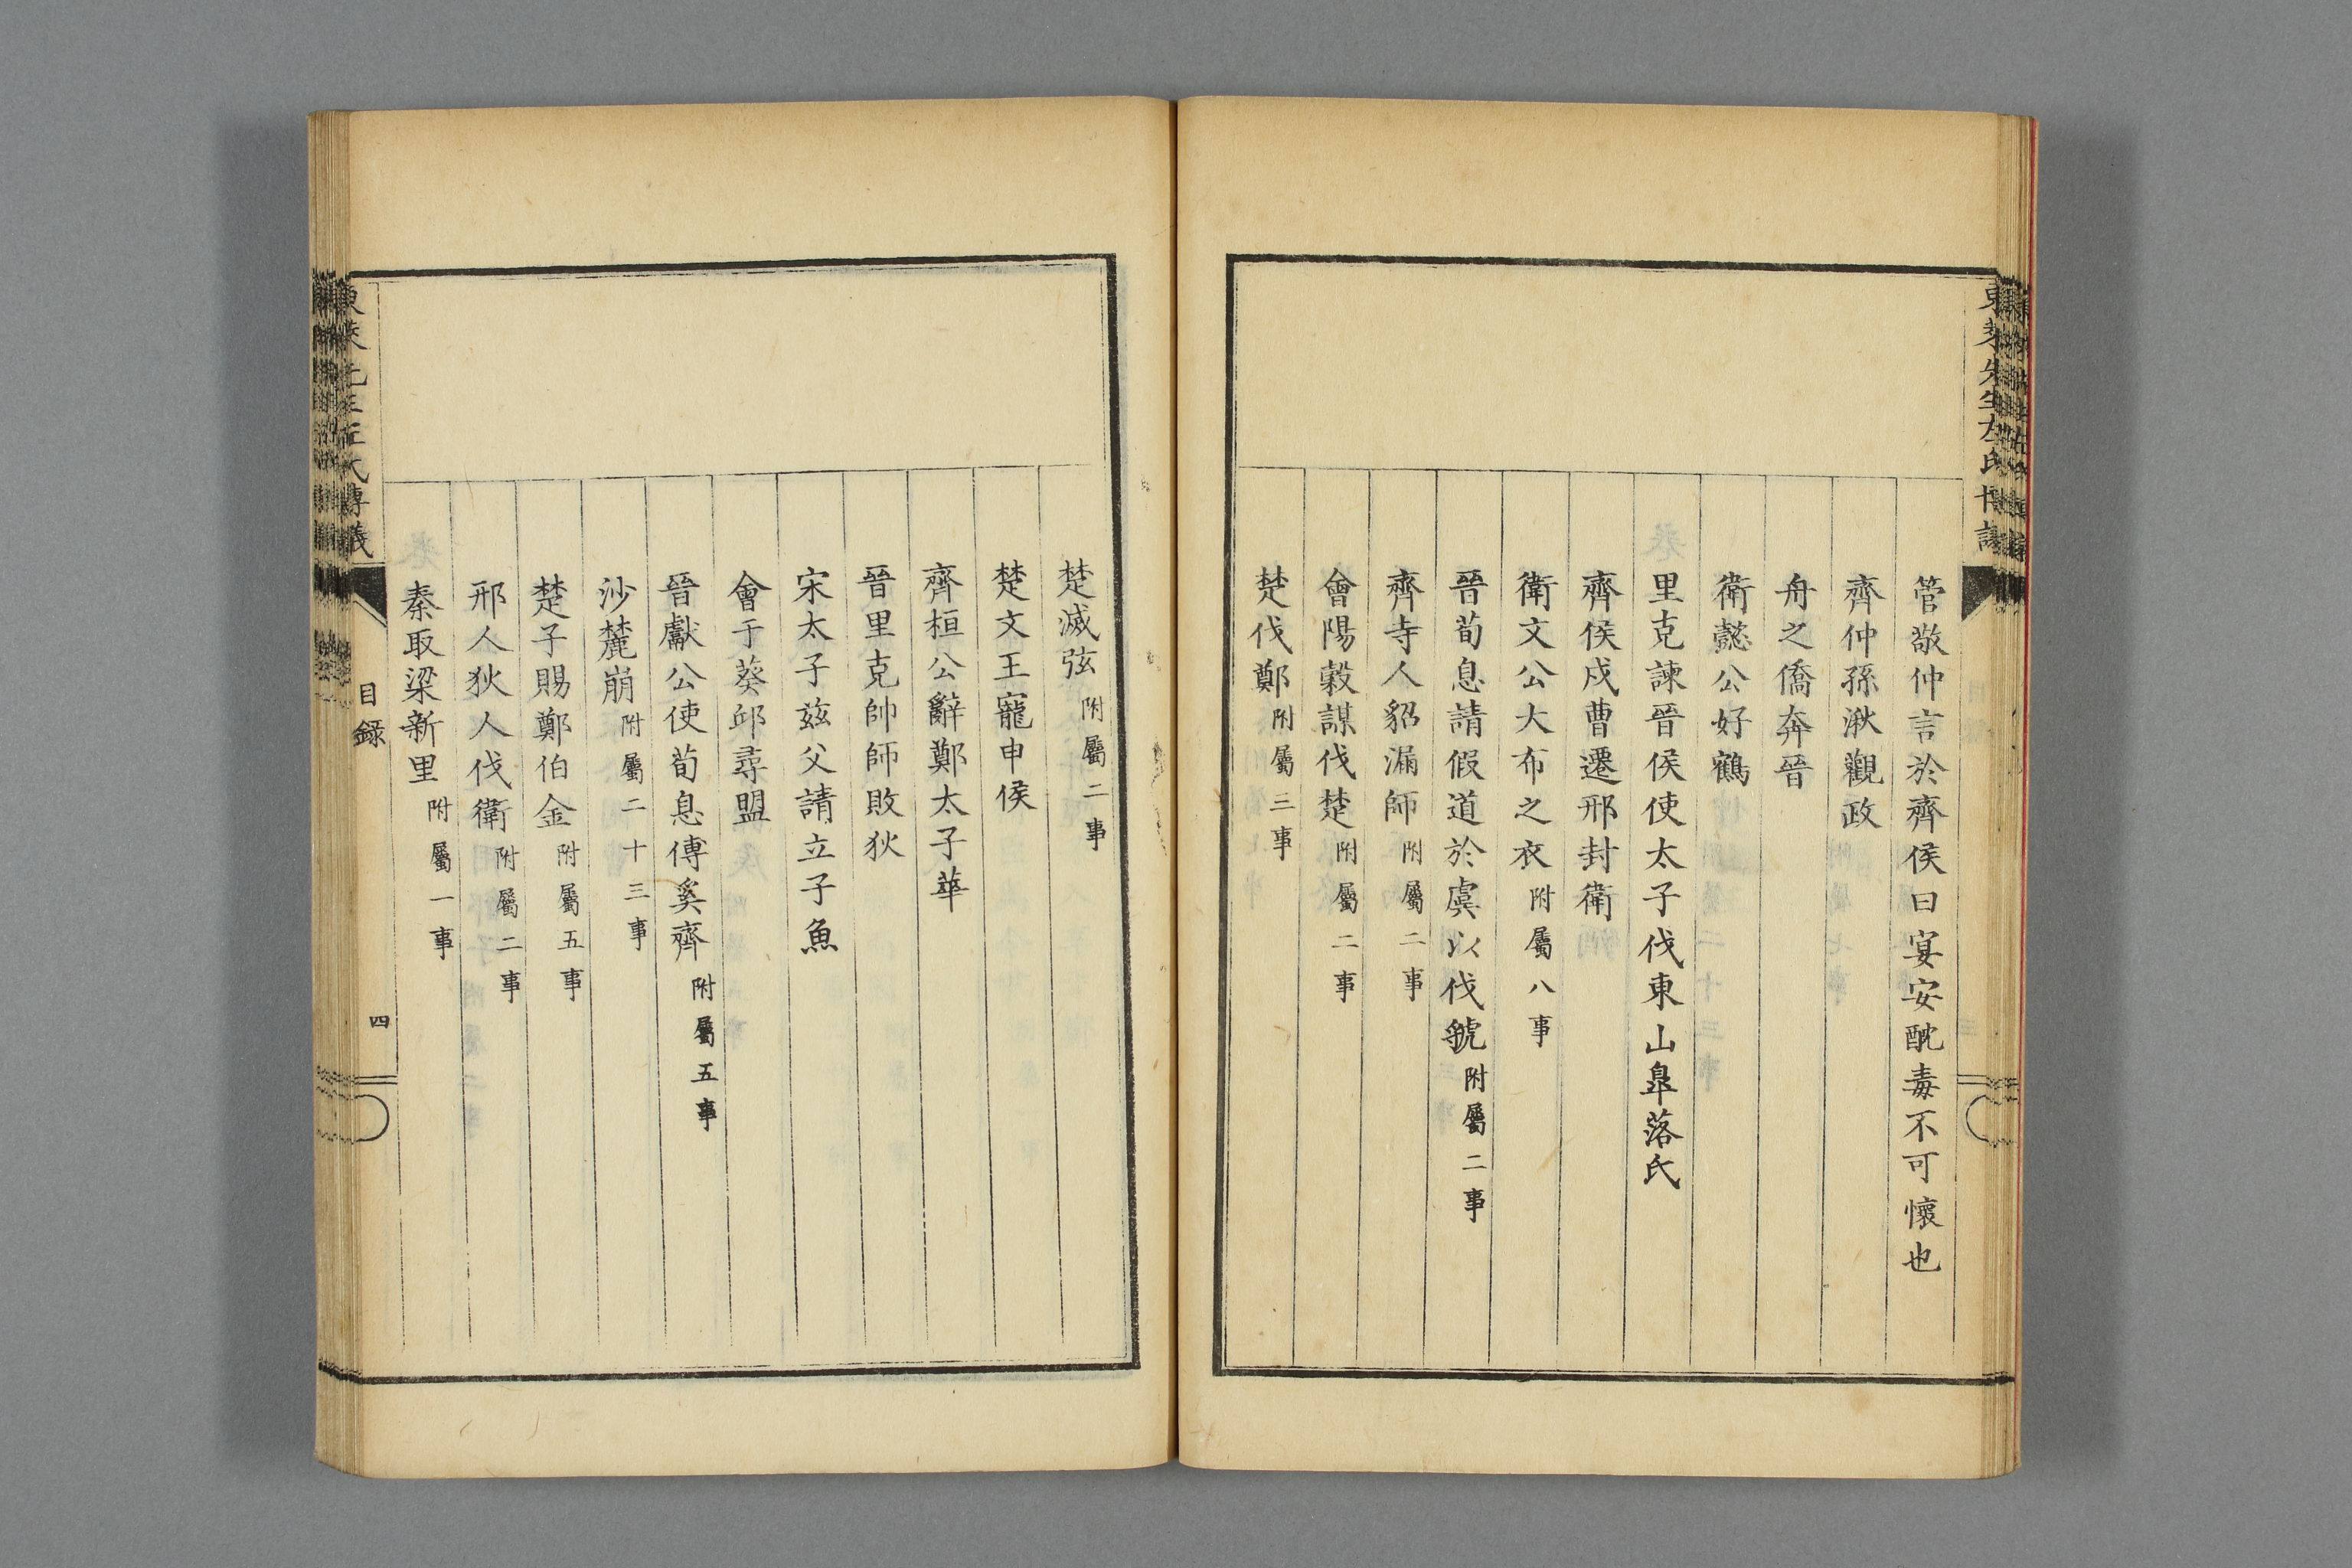 管敬仲言於齊侯曰宴安酖毒不可懷也
齊仲孫湫觀政
舟之僑奔晉
衛懿公好鶴
里克諫晉侯使太子伐東山皐落氏
齊侯戍曹遷邢封衛
衛文公大布之衣附屬八事
晉荀息請假道於虞以伐虢附屬二事
齊寺人貂漏師附屬二事
會陽穀謀伐楚附屬二事
楚伐鄭附屬三事
楚滅弦附屬二事
楚文王寵申侯
齊桓公辭鄭太子華
晉里克帥師敗狄
宋太子茲父請立子魚
會于葵邱尋盟
晉獻公使荀息傅奚齊附屬五事
沙麓崩附屬二十三事
楚子賜鄭伯金附屬五事
邢人狄人伐衛附屬二事
秦取梁新里附屬一事
東萊先生左氏博議
目錄
四